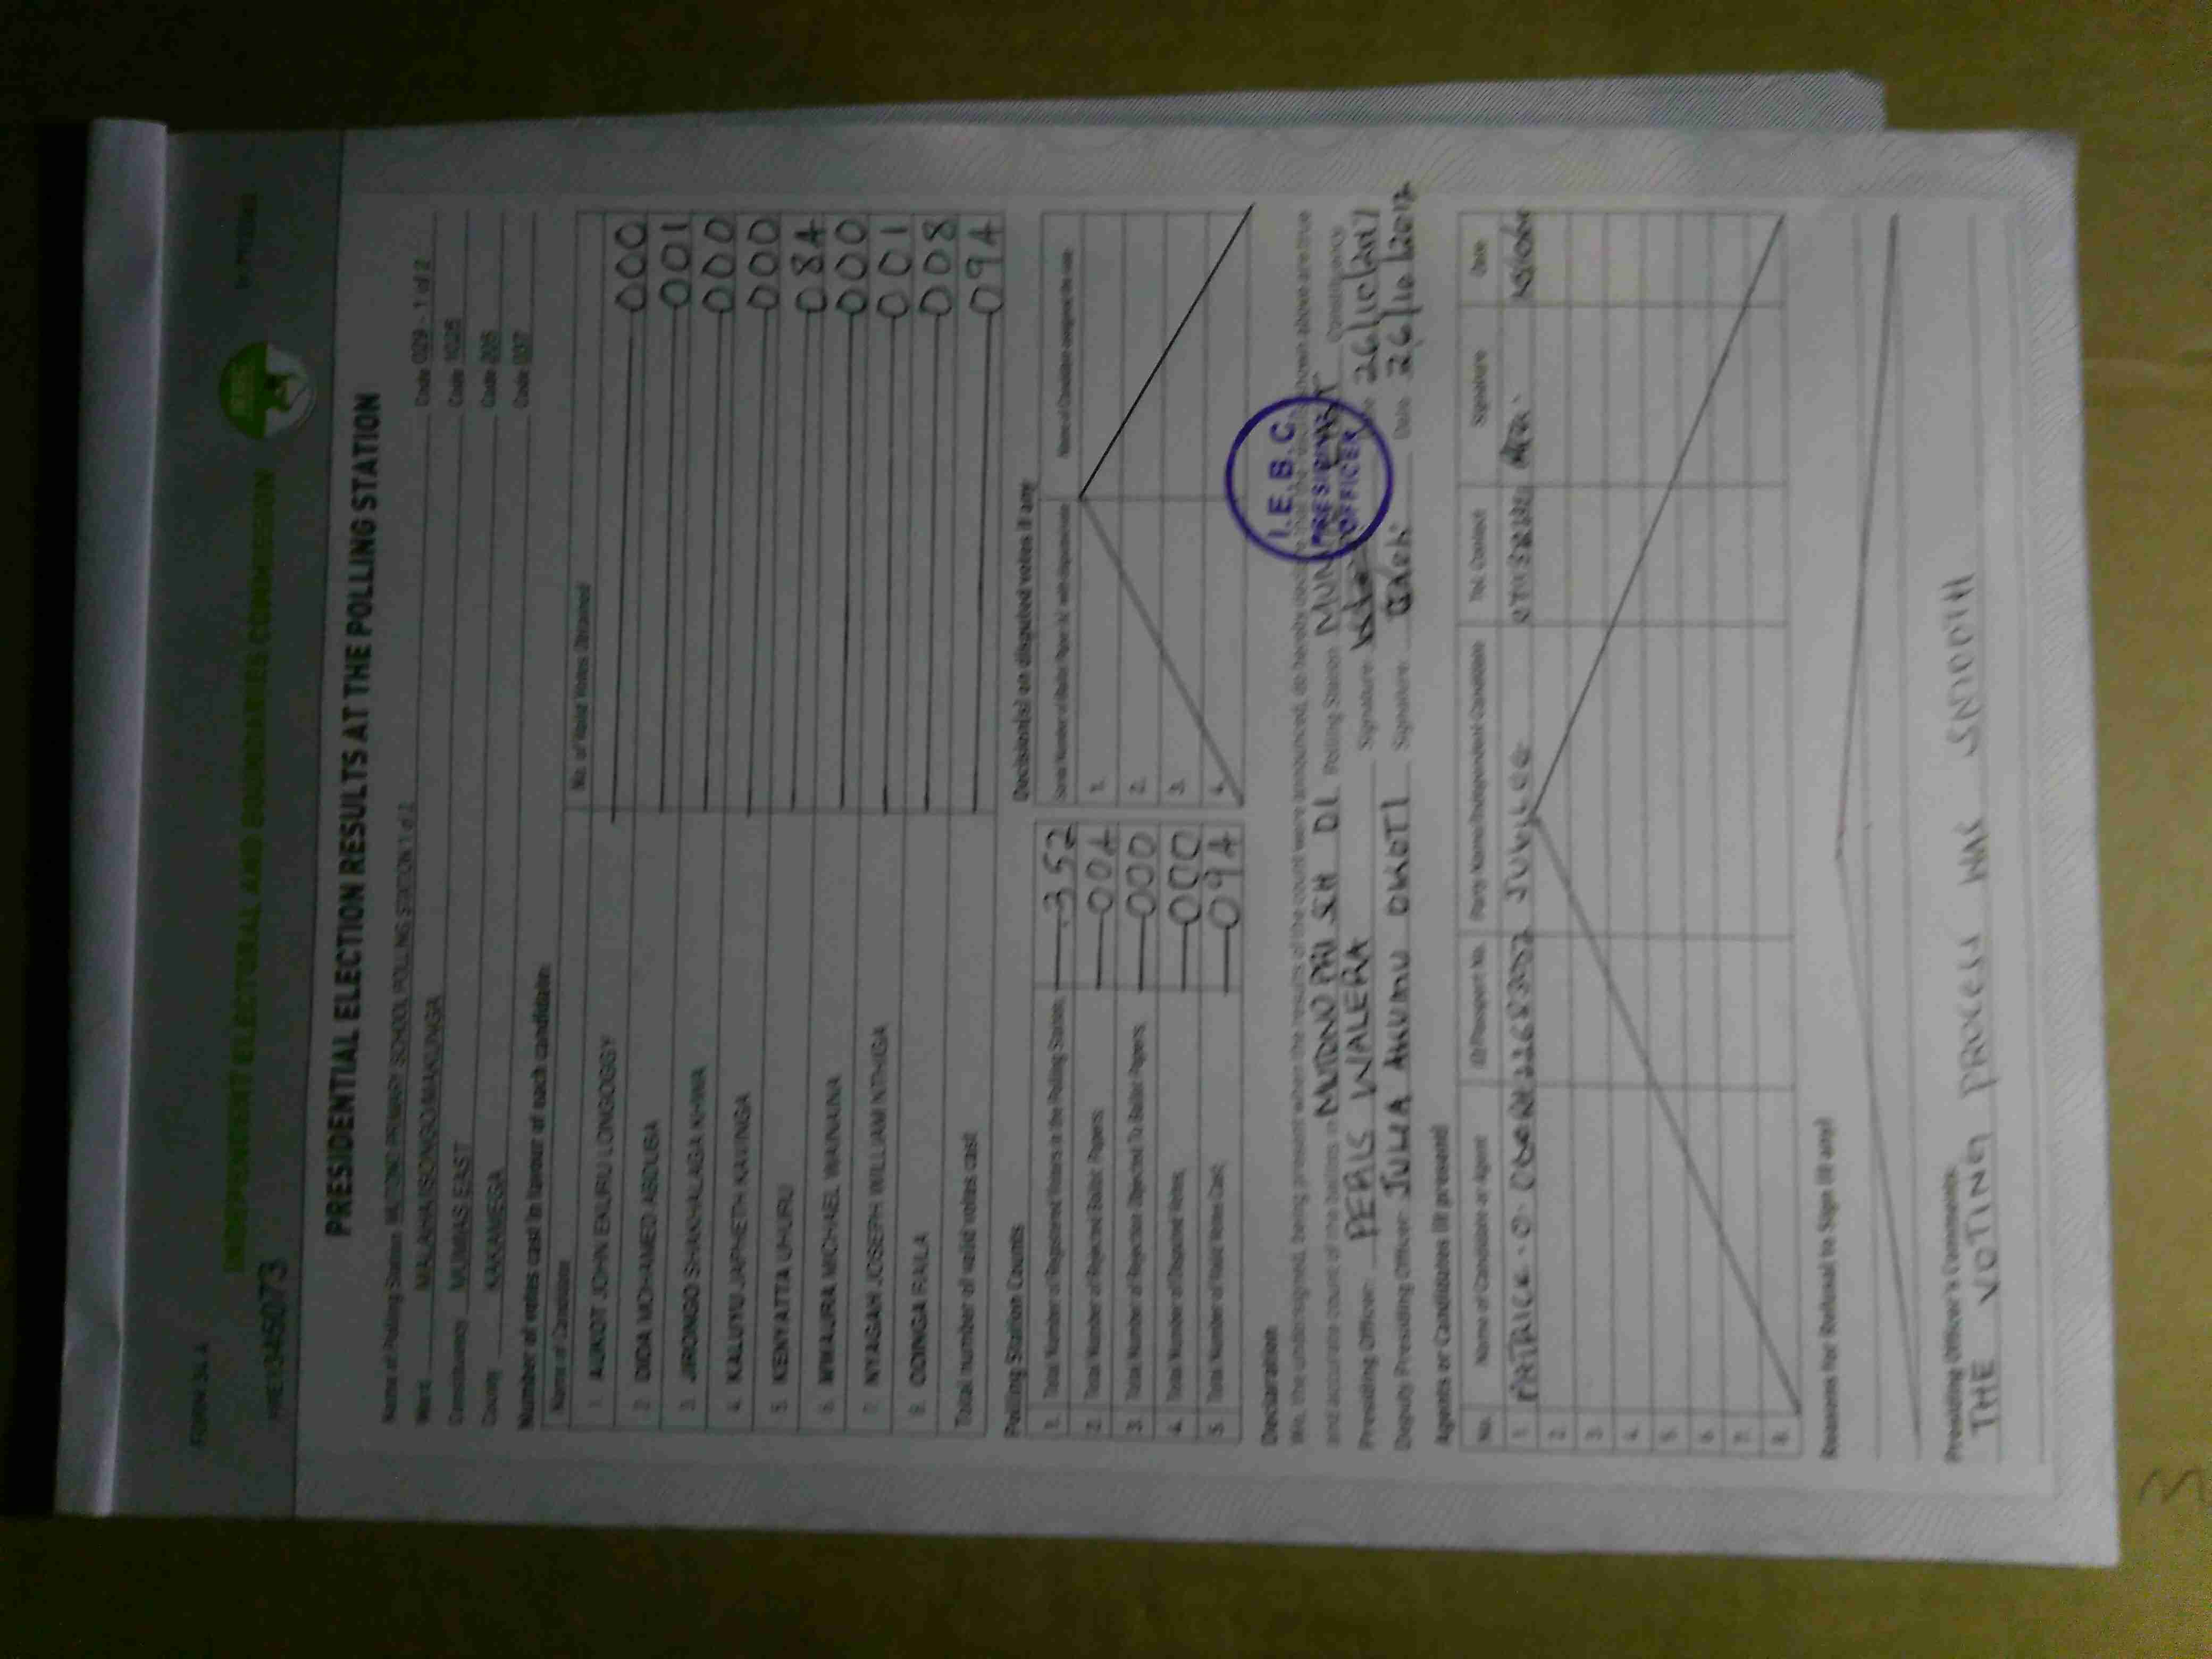 FORM 34A
INDEPENDENT ELECTORAL AND BOUNDARIES COMMISSION
PRESIDENTIAL ELECTION RESULTS AT THE POLLING STATION
Name of Polling Station MUTONO PRIMARY SCHOOL POLLING STATION 1 of 2 Code 029 - 1 of 2
Ward MALAHA/ISONGO/MAKUNGA Code 1026
Constituency MUMIAS EAST Code 205
County KAKAMEGA Code 037
Number of votes cast in favour of each candidate:
Name of Candidate No. of Valid Votes Obtained
1. AUKOT JOHN EKURU LONGOGGY 000
2. DIDA MOHAMED ABDUBA 001
3. JIRONGO SHAKHALAGA KHWA 000
4. KALUYU JAPHETH KAVINGA 000
5. KENYATTA UHURU 084
6. MWAURA MICHAEL WAINAINA 000
7. NYAGAH JOSEPH WILLIAM NTHIGA 001
8. ODINGA RAILA 008
Total number of valid votes cast 094
Polling Station Counts
1. Total Number of Registered Voters in the Polling Station 352
2. Total Number of Rejected Ballot Papers 004
3. Total Number of Rejection Objected To Ballot Papers 000
4. Total Number of Disputed Votes 000
5. Total Number of Valid Votes Cast 094
Decision(s) on disputed votes if any
1.
2.
3.
4.
Declaration
We, the undersigned, being present when the results of the count were announced, do hereby declare that the results shown above are true
and accurate count of the ballots in MUTONO PRI SCH 01 Polling Station Constituency
Presiding Officer: PERIS WALERA Signature Date 26/10/2017
Deputy Presiding Officer: JULIA AKUMU OKOTI Signature Date 26/10/2017
I.E.B.C.
PRESIDING
OFFICER
Agents or Candidates (if present)
No. Name of Candidate or Agent ID/Passport No. Party Name/Independent Candidate Tel. Contact Signature Date
1. PATRICK O. JUBILEE
2.
3.
4.
5.
6.
7.
8.
Reasons for Refusal to Sign (if any)
Presiding Officer's Comments
THE VOTING PROCESS WAS SMOOTH